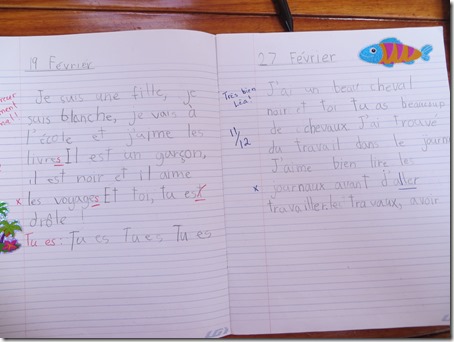 19 Février
Je suis une fille, je
suis blanche, je vais à
l'école et j'aime les
livres Il est un garçon,
il est noir et il aime
x les voyages Et toi, tu est
drôle
Tu es: Tu es Tu es Tu es
27 Février
Très bien
Léa!
J'ai un beau cheval
noir et toi tu as beaucoup
11/12
de chevaux. J'ai trouvé
du travail dans le journ
J'aime bien lire les
x journaux avant d'aller
travailler.les travaux, avoir